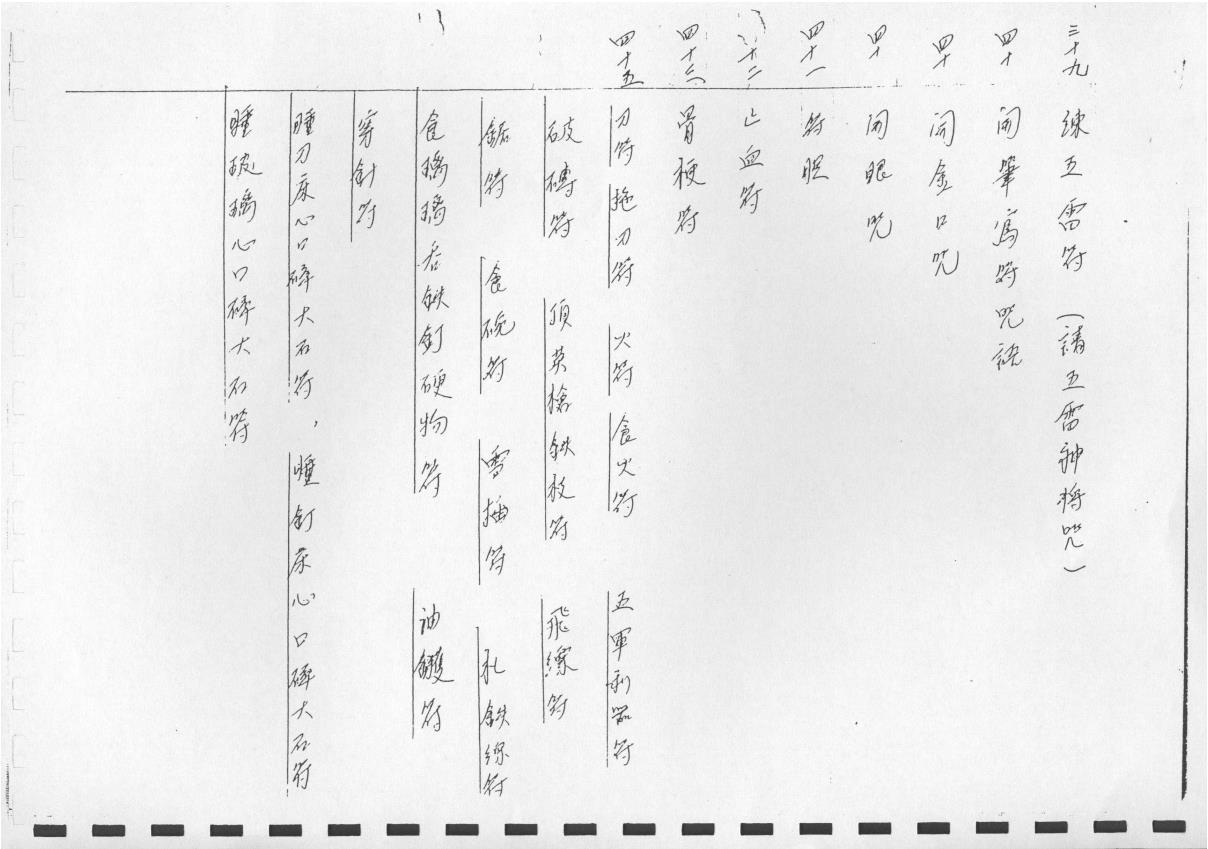 三十九 練五雷符（請五雷神將咒）
四十 開筆寫符咒語
四十 開金口咒
四十 開眼咒
四十一 符胆
十二 止血符
四十三 骨梗符
四十五 刀符 拖刀符 火符 食火符 五軍利器符
破磚符 頂英槍鉄枝符 飛縩符
鋸符 食碗符 雪插符 扎鉄線符
食璃璃吞鉄釘硬物符 油鑊符
穿針符
瞳刀床心口碎大石符，瞳釘床心口碎大石符
瞳玻璃心口碎大石符